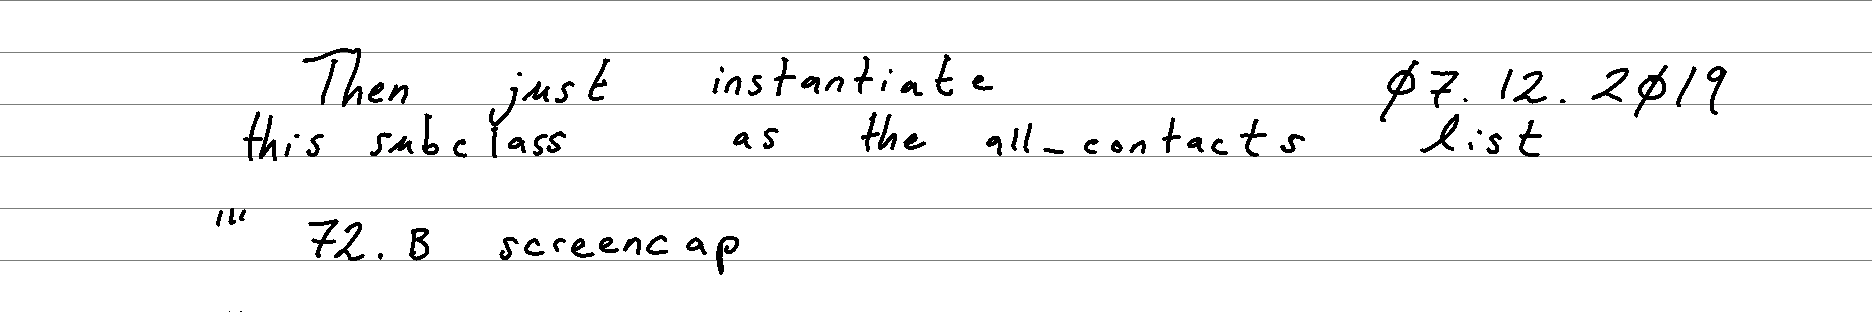 Then just instantiate 07.12.2019
this subclass as the all_contacts list
''' 72.B screencap